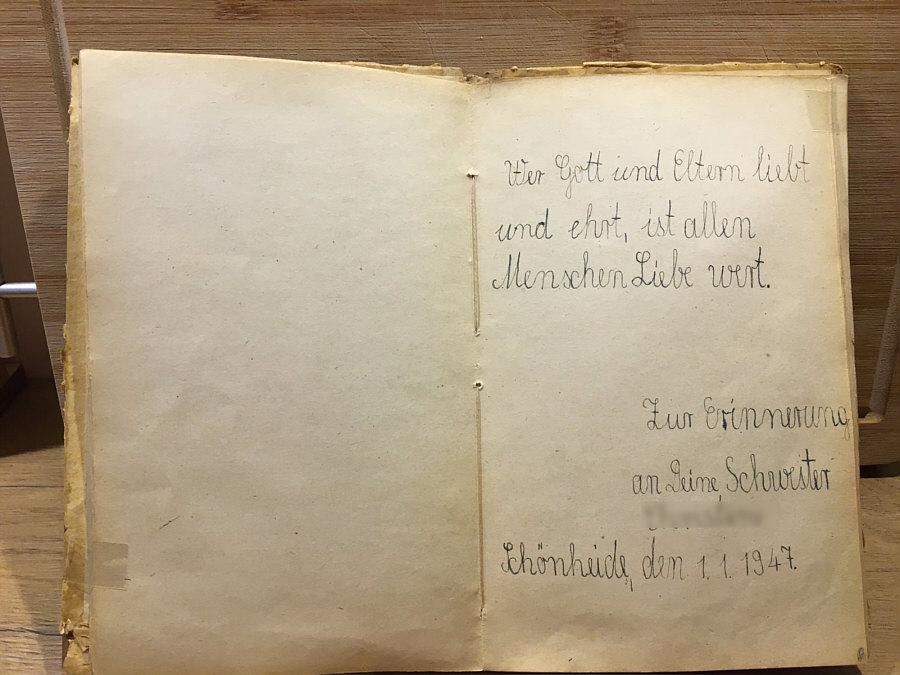 Wer Gott und Eltern liebt
und ehrt, ist allen
Menschen Liebe wert.
Zur Erinnerung
an Deine Schwester
Schönheide, den 1. 1. 1947.